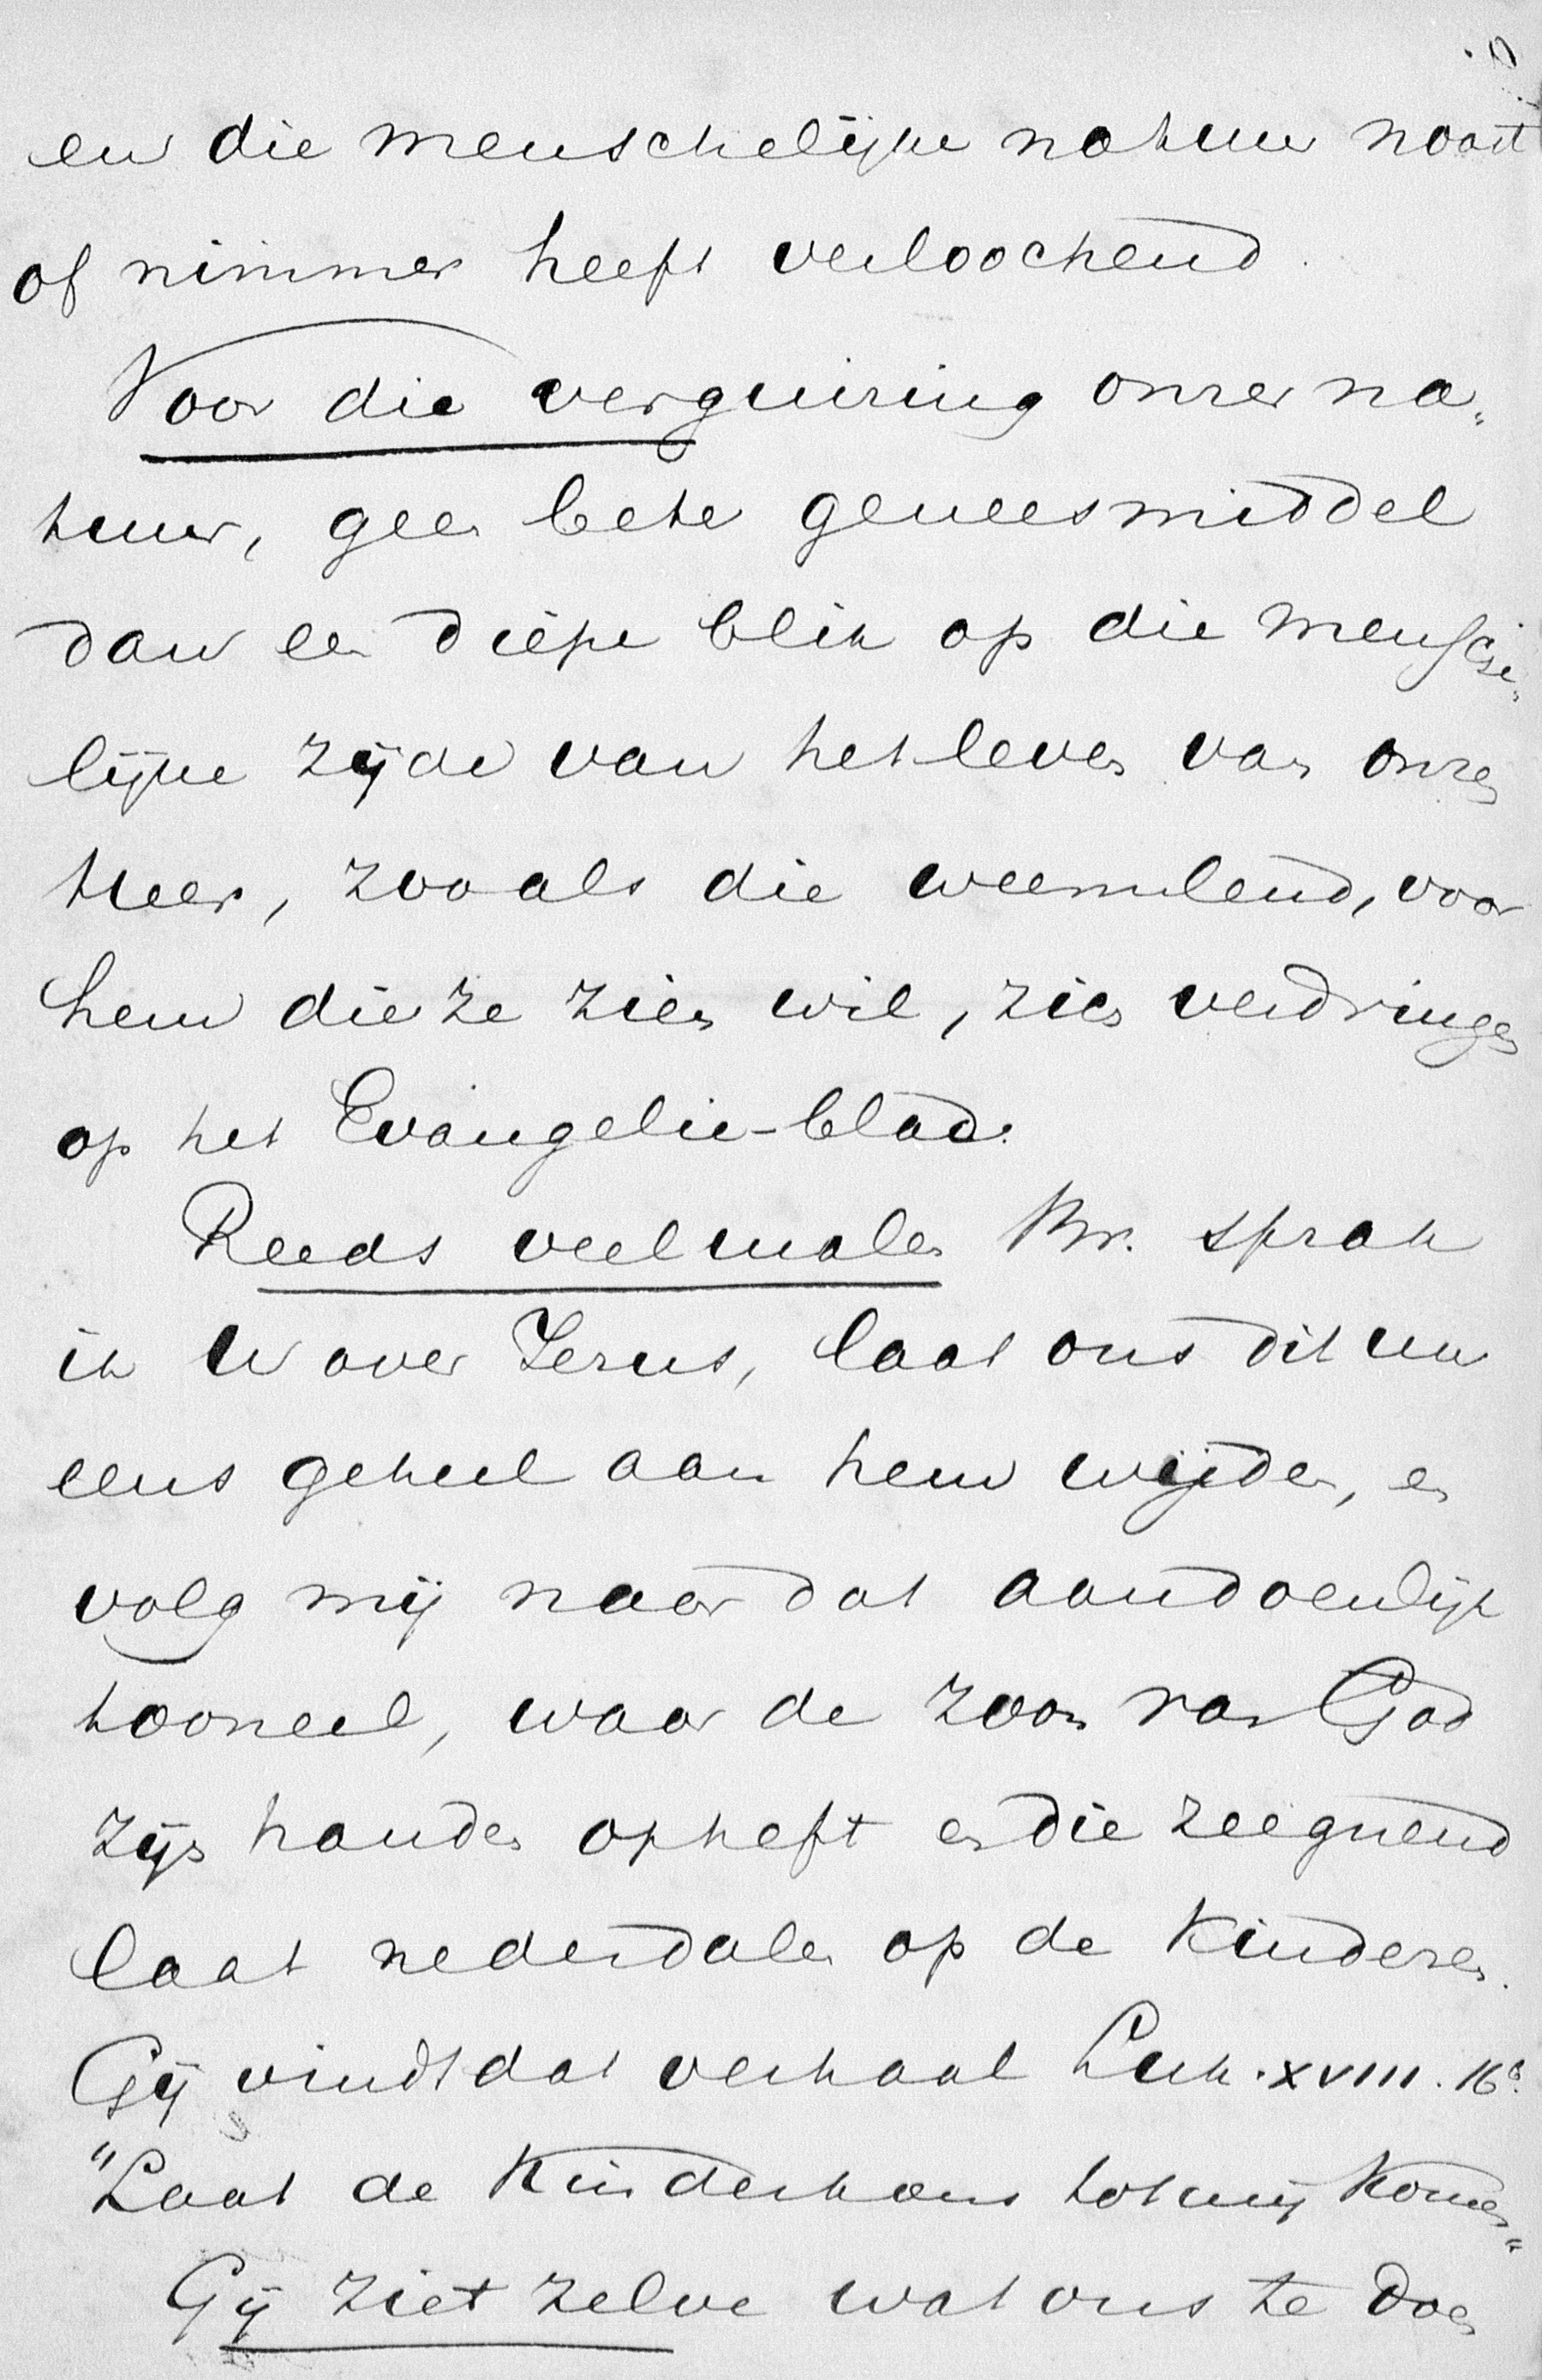 en die menschelijke natuur nooit
of nimmer heeft verloochend.
Voor die verguizing onzer na„
tuur, geen beter geneesmiddel
dan een diepe blik op die mensche„
lijke zijde van het leven van onzen
Heer, zooals die weemelend, voor
hem die ze zien wil, zich verdringen
op het Evangelie-blad.
Reeds veelmalen Br. sprak
ik U over Jezus, laat ons dit uur
eens geheel aan hem wijden, en
volg mij naar dat aandoenlijk
tooneel, waar de zoon van God
zijn handen opheft en die zeegnend
laat nederdalen op de Kinderen.
Gij vindt dat verhaal Luk. XVIII. 16a.
"Laat de Kinderkens tot mij Komen"
Gij ziet zelve wat ons te doen